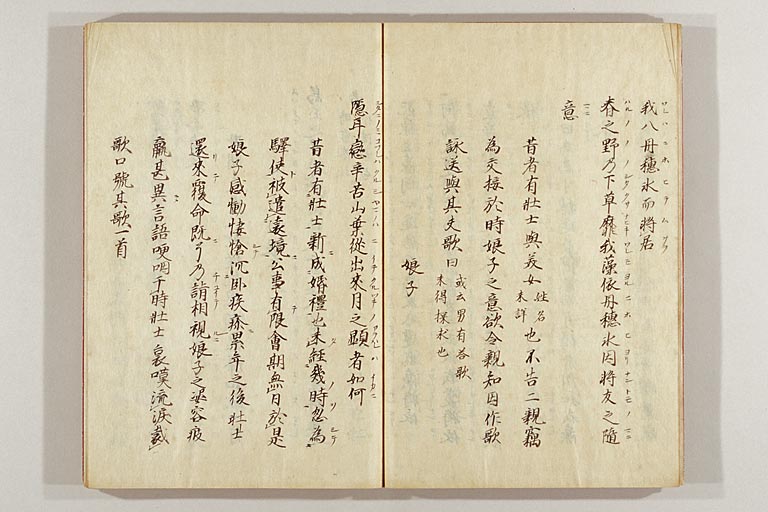 我八丹穂氷而將居
春之野乃下草靡我藻依丹穂氷因將友之隨
意
昔者有壯士與美女 姓名
未詳 也不告二親竊
為交接於時娘子之意欲令親知因作歌
詠送與其夫歌曰 或云男有荅歌
未得探求也
娘子
隠耳戀辛苦山葉從出來月之顕者如何
昔者有壯士新成婚禮也未經幾時忽為
驛使被遣遠境公事有限會期無日於是
娘子感慟悽愴沉臥疾疹累年之後壯士
還來覆命既了乃詣相視娘子之姿容疲
羸甚異言語哽咽于時壯士哀嘆流涙裁
歌口號其歌一首